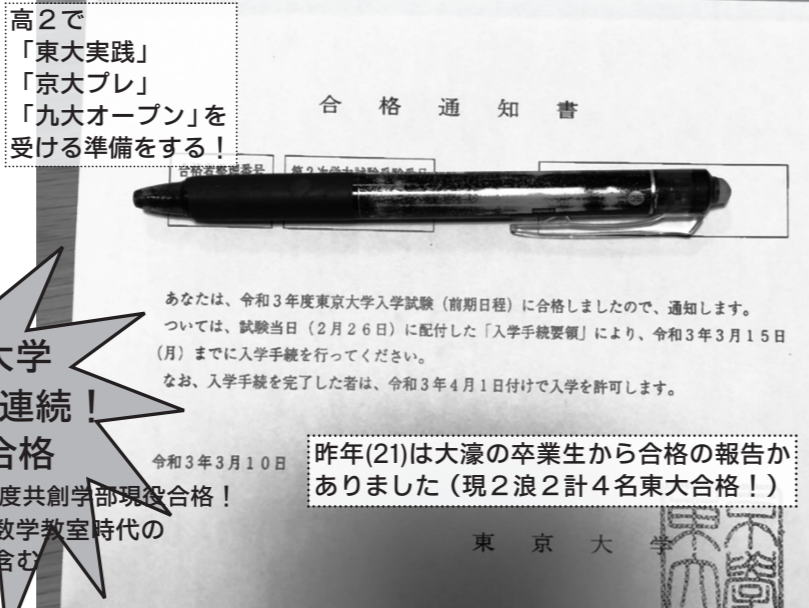 高２で
「東大実践」
「京大プレ」
「九大オープン」を
受ける準備をする！
合格通知書
合格者整理番号
第２次学力試験受験番号
あなたは、令和３年度東京大学入学試験（前期日程）に合格しましたので、通知します。
ついては、試験当日（２月２６日）に配付した「入学手続要領」により、令和３年３月１５日
（月）までに入学手続を行ってください。
なお、入学手続を完了した者は、令和３年４月１日付けで入学を許可します。
大学
連続！
合格
度共創学部現役合格！
数学教室時代の
含む
令和３年３月１０日
昨年(21)は大濠の卒業生から合格の報告か
ありました（現２浪２計４名東大合格！）
東京大学